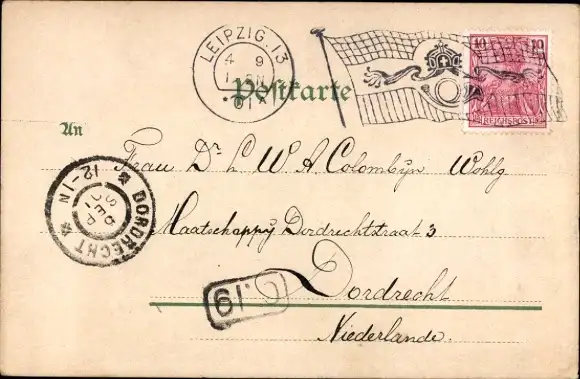 LEIPZIG. 13
4 9
1-2N
01
10 10
REICHSPOST
Postkarte
An
Frau Dr L W A Colombijn Wohlg
Maatschappij Dordrechtstraat 3
Dordrecht
Niederlande.
DORDRECHT
12-1N
SEP
01